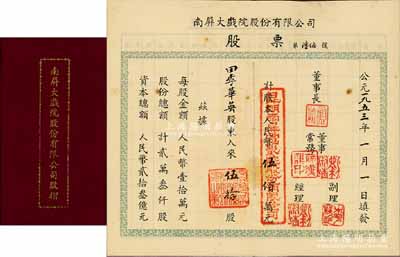 南屏大戲院股份有限公司股摺
南屏大戲院股份有限公司
股票
第陸佰號
公元一九五三年一月一日填發
董事長
常務董事
副理
經理
計股本人民幣伍佰萬元
伍拾股
田李華英股東入來
茲據
每股金額人民幣壹拾萬元
股份總額計貳萬叁仟股
資本總額人民幣貳拾叁億元